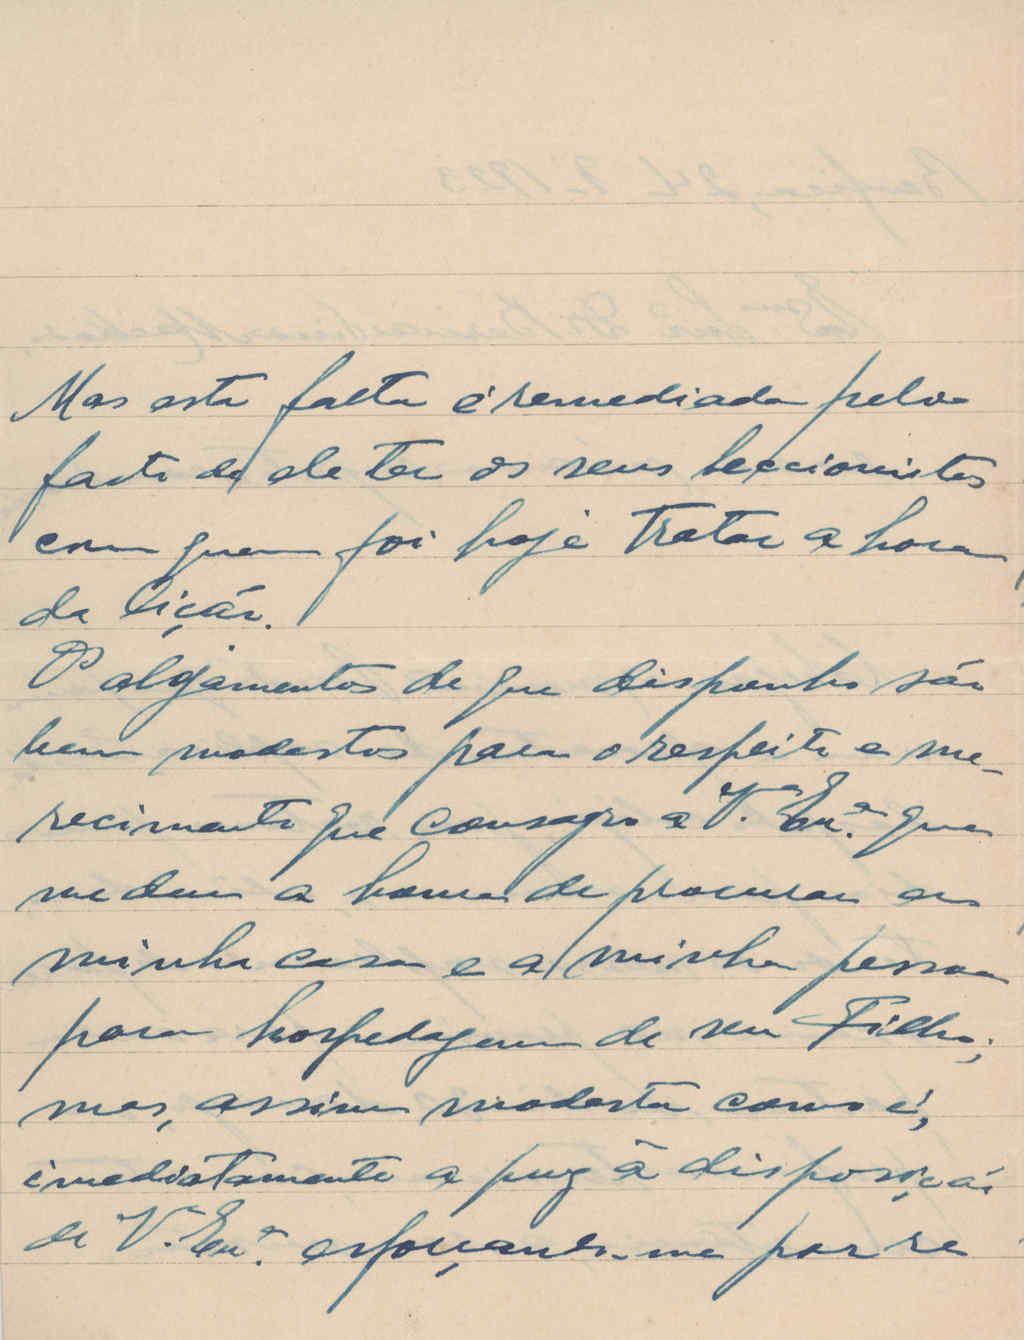 Mas esta falta é remediada pelo
facto de ele ter os seus leccionistas
com quem foi hoje tratar a hora
da lição.
O alojamentos de que disponho são
bem modestos para o respeito e me-
recimento que consagro a V. Exª. que
me deu a honra de procurar a
minha casa e a minha pessoa
para hospedagem de seu Filho;
mas, assim modesta como é,
imediatamente a puz á disposição
de V. Exª. esforçando-me por re